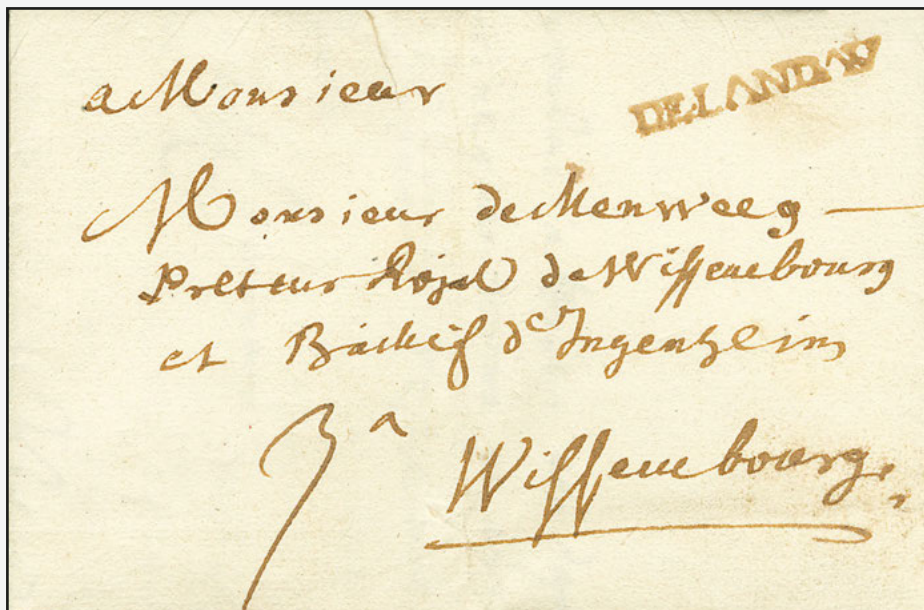 a Monsieur
DE LANDAW
Monsieur de Menweeg
Preteur Royal de Wissenbourg
et d'Ingenheim
3 a
Wissenbourg.